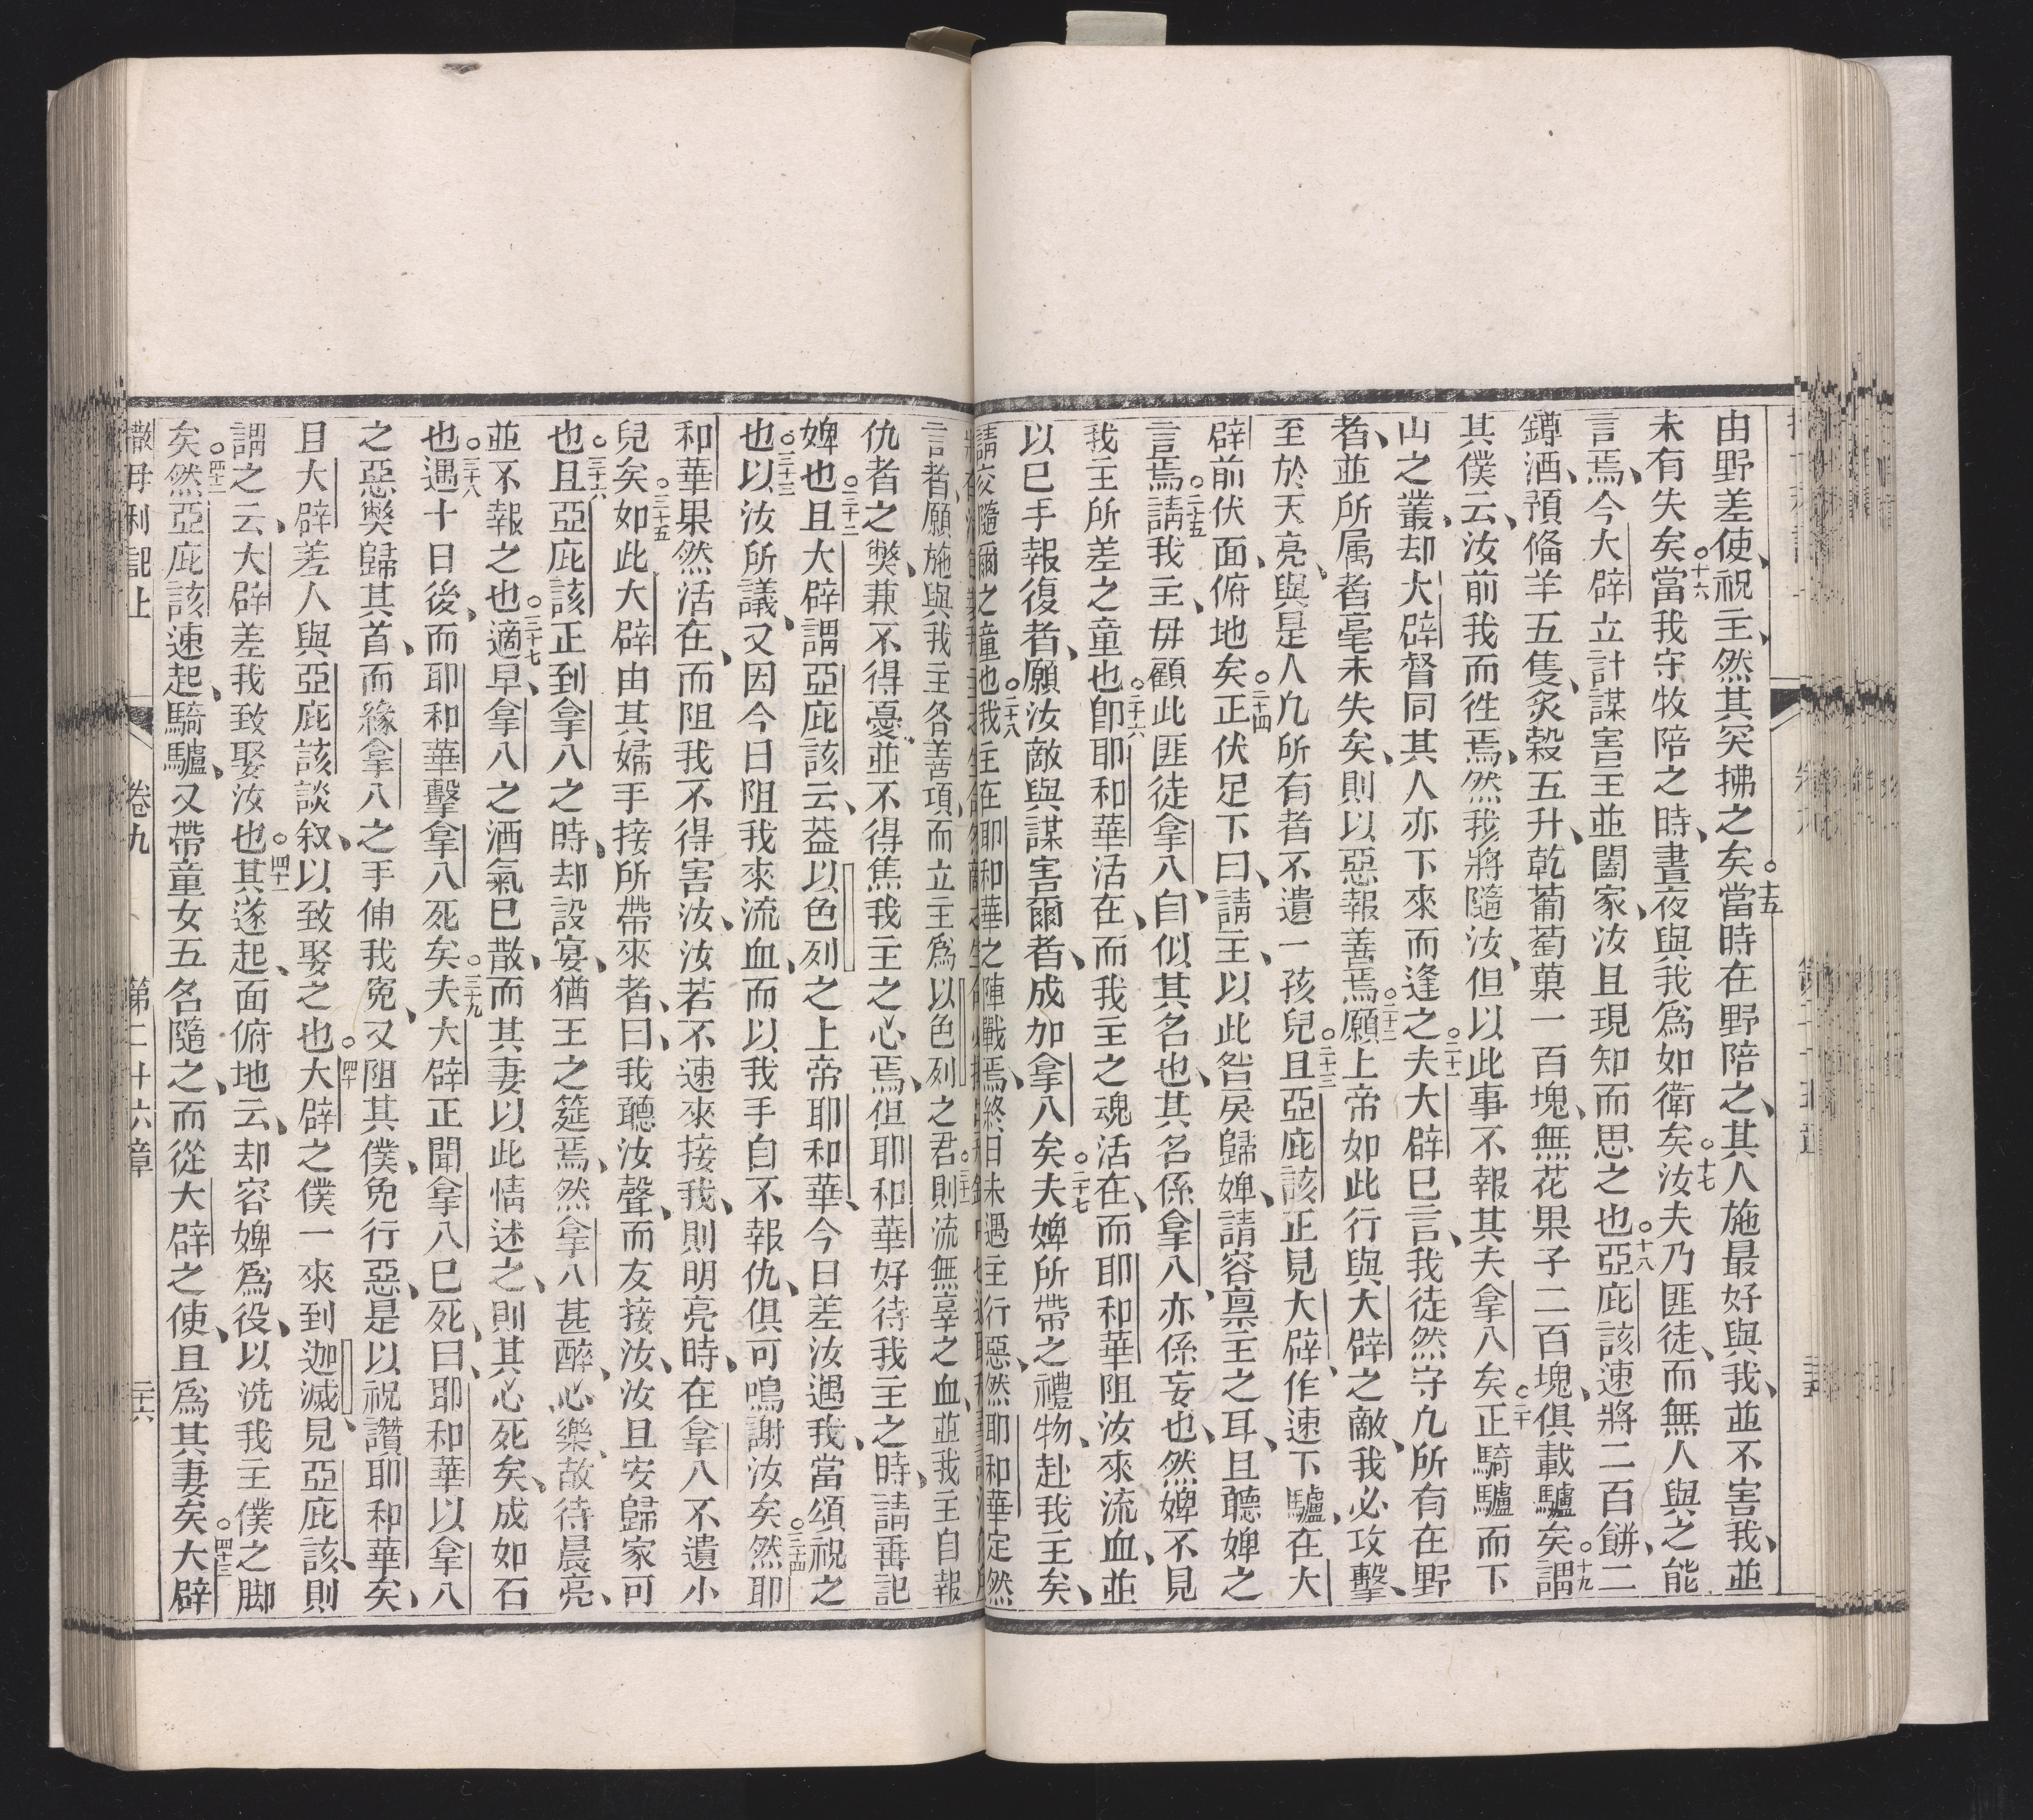 由野差使、祝主、然其突拂之矣。十五當時在野陪之、其人施最好與我、並不害我、並
未有失矣。十六當我守牧陪之時、晝夜與我爲如衛矣。十七汝夫乃匪徒、而無人與之能
言焉、今大辟立計謀害主並闔家、汝且現知而思之也。十八亞庇該速將二百餅、二
罇酒、預俻羊五隻、炙穀五升、乾葡萄菓一百塊、無花果子二百塊、俱載驢矣。十九謂
其僕云、汝前我而徃焉、然我將隨汝、但以此事不報其夫拿八矣。二十正騎驢而下
山之叢、却大辟督同其人亦下來而逢之。二十一夫大辟巳言、我徒然守凢所有在野
者、並所属者毫未失矣、則以惡報善焉。二十二願上帝如此行與大辟之敵、我必攻擊、
至於天亮、與是人凢所有者不遺一孩兒。二十三且亞庇該正見大辟、作速下驢、在大
辟前伏面、俯地矣。二十四正伏足下曰、請主、以此咎戾歸婢、請容稟主之耳、且聽婢之
言焉。二十五請我主、毋顧此匪徒拿八、自似其名也、其名係拿八、亦係妄也、然婢不見
我主所差之童也。二十六卽耶和華活在、而我主之魂活在、而耶和華阻汝來流血、並
以巳手報復者、願汝敵與謀害爾者、成加拿八矣。二十七夫婢所帶之禮物、赴我主矣、
請交隨爾之童也。二十八我主在耶和華之陣戰焉、終日未遇主行惡、然耶和華定然
言者、願施與我主各善項、而立主爲以色列之君。三十一則流無辜之血、並我主自報
仇者之獘、兼不得憂、並不得焦我主之心焉、但耶和華好待我主之時、請畨記
婢也。三十二且大辟謂亞庇該云、葢以色列之上帝耶和華、今日差汝遇我、當頌祝之
也。三十三以汝所議、又因今日阻我來流血、而以我手自不報仇、俱可鳴謝汝矣。三十四然耶
和華果然活在、而阻我不得害汝、汝若不速來接我、則明亮時、在拿八不遺小
兒矣。三十五如此大辟由其婦手接所帶來者、曰、我聽汝聲、而友接汝、汝且安歸家可
也。三十六且亞庇該正到拿八之時、却設宴、猶王之筵焉、然拿八甚醉、心樂、故待晨亮、
並不報之也。三十七適早、拿八之酒氣巳散、而其妻以此情述之、則其心死矣、成如石
也。三十八遇十日後、而耶和華擊拿八死矣。三十九夫大辟正聞拿八巳死、曰、耶和華以拿八
之惡獘歸其首、而緣拿八之手伸我寃、又阻其僕、免行惡、是以祝讚耶和華矣、
且大辟差人與亞庇該談叙、以致娶之也。四十大辟之僕一來到迦滅、見亞庇該、則
謂之云、大辟差我致娶汝也。四十一其遂起、面俯地云、却容婢爲役、以洗我主僕之脚
矣。四十二然亞庇該速起、騎驢、又帶童女五名隨之、而從大辟之使、且爲其妻矣。四十三大辟
撒母利記上 卷九 第二十六章 二十六